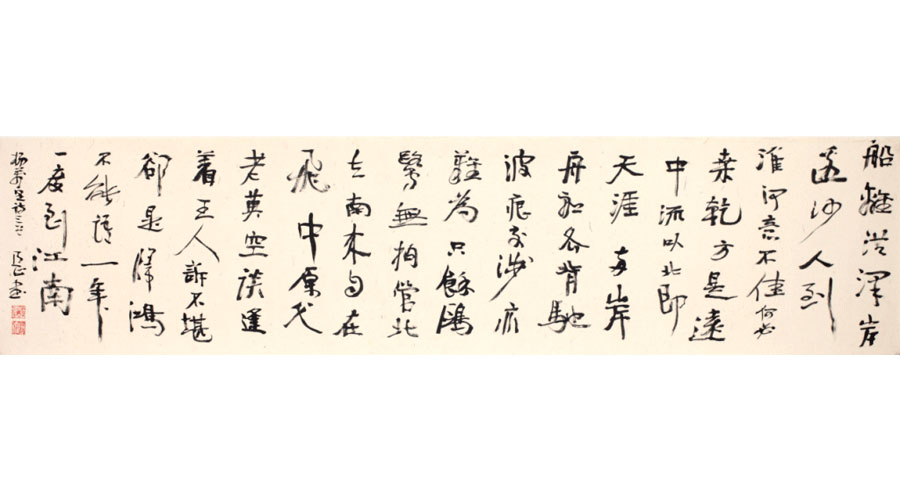 船離洪澤岸
頭沙人到
淮河意不佳何必
桑乾方是遠
中流以北即
天涯兩岸
舟船各背馳
波痕交涉亦
難為只餘鷗
鷺無拘管北
去南來自在
飛中原父
老莫空談逢
着王人訴不堪
卻是歸鴻
不能語一年
一度到江南
楊萬里詩三首 書